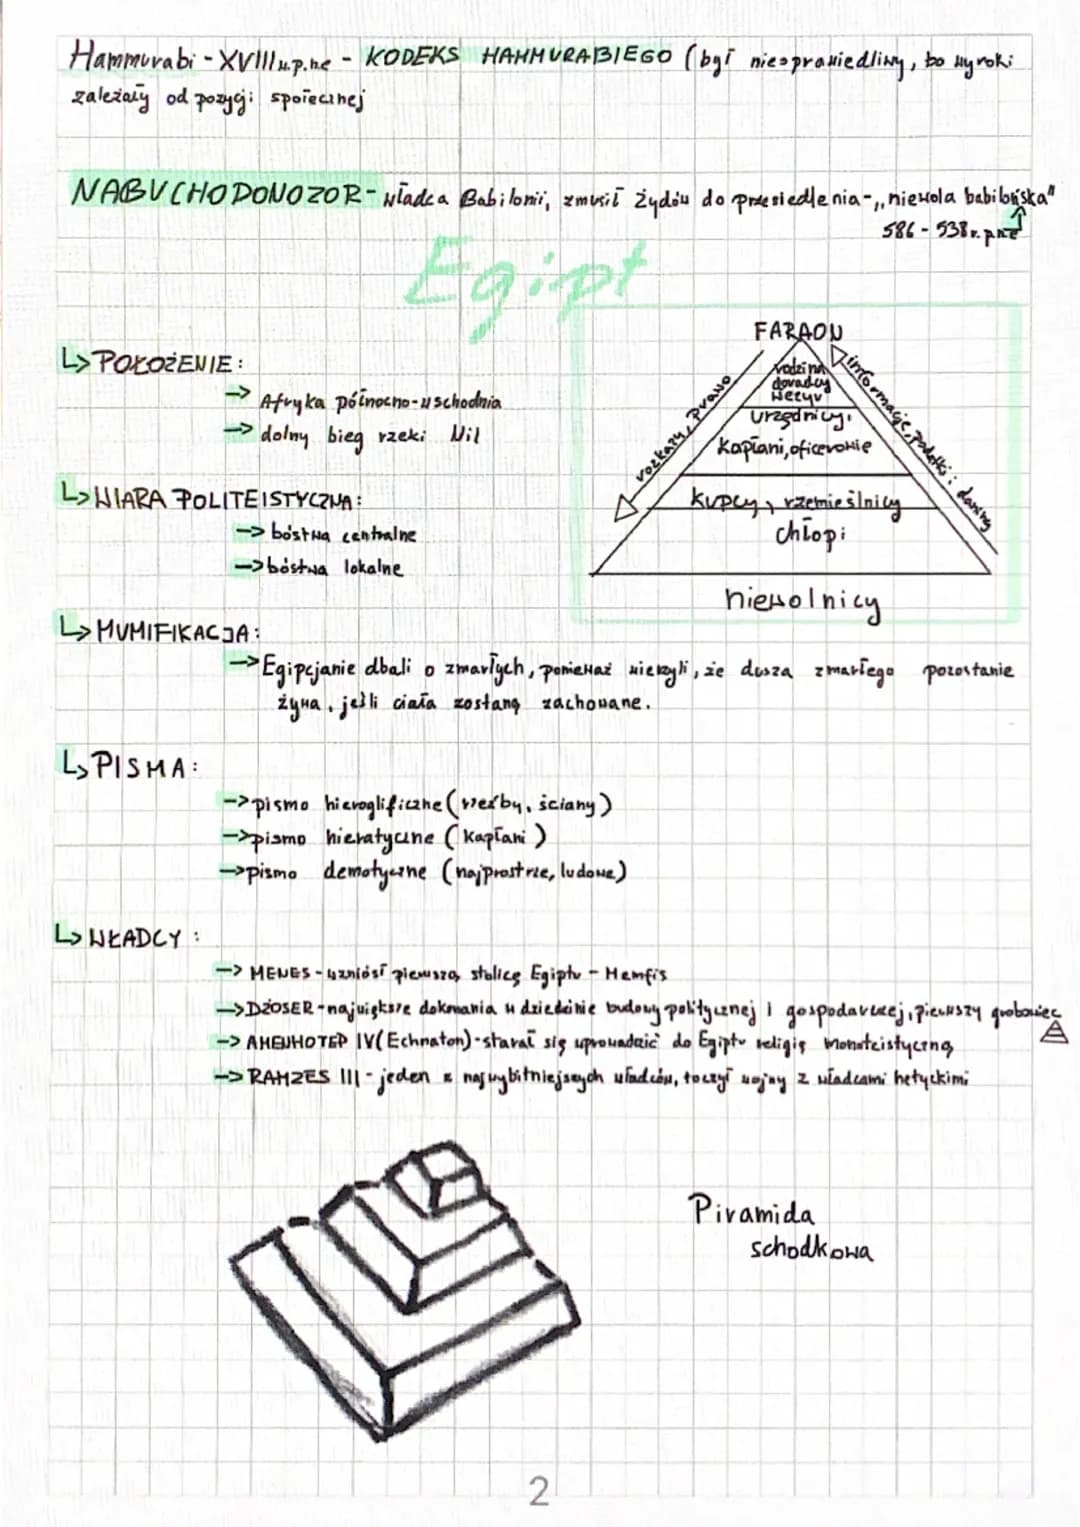 Hammurabi - XVIII w.p.ne - KODEKS HAMMURABIEGO (był niesprawiedliwy, bo wyroki
zależały od pozycji społecznej
NABUCHODONOZOR - władca Babilonii, zmusił Żydów do przesiedlenia - „niewola babilońska"
586 - 538 r. pne
Egipt
↳ POŁOŻENIE:
-> Afryka północno-wschodnia
-> dolny bieg rzeki Nil
FARAON
rodzina
doradcy
wezyr
urzędnicy,
kapłani, oficerowie
kupcy, rzemieślnicy
chłopi
niewolnicy
rozkazy, prawo
informacje, podatki i daniny
↳ WIARA POLITEISTYCZNA:
-> bóstwa centralne
-> bóstwa lokalne
↳ MUMIFIKACJA:
-> Egipcjanie dbali o zmarłych, ponieważ wierzyli, że dusza zmarłego pozostanie
żywa, jeśli ciała zostaną zachowane.
↳ PISMA:
-> pismo hieroglificzne (rzeźby, ściany)
-> pismo hieratyczne (kapłani)
-> pismo demotyczne (najprostsze, ludowe)
↳ WŁADCY:
-> MENES - wzniósł pierwszą stolicę Egiptu - Memfis
-> DŻOSER - największe dokonania w dziedzinie budowy politycznej i gospodarczej, pierwszy grobowiec
-> AMENHOTEP IV (Echnaton) - starał się wprowadzić do Egiptu religię monoteistyczną
-> RAMZES III - jeden z najwybitniejszych władców, toczył wojny z władcami hetyckimi
Piramida
schodkowa
2